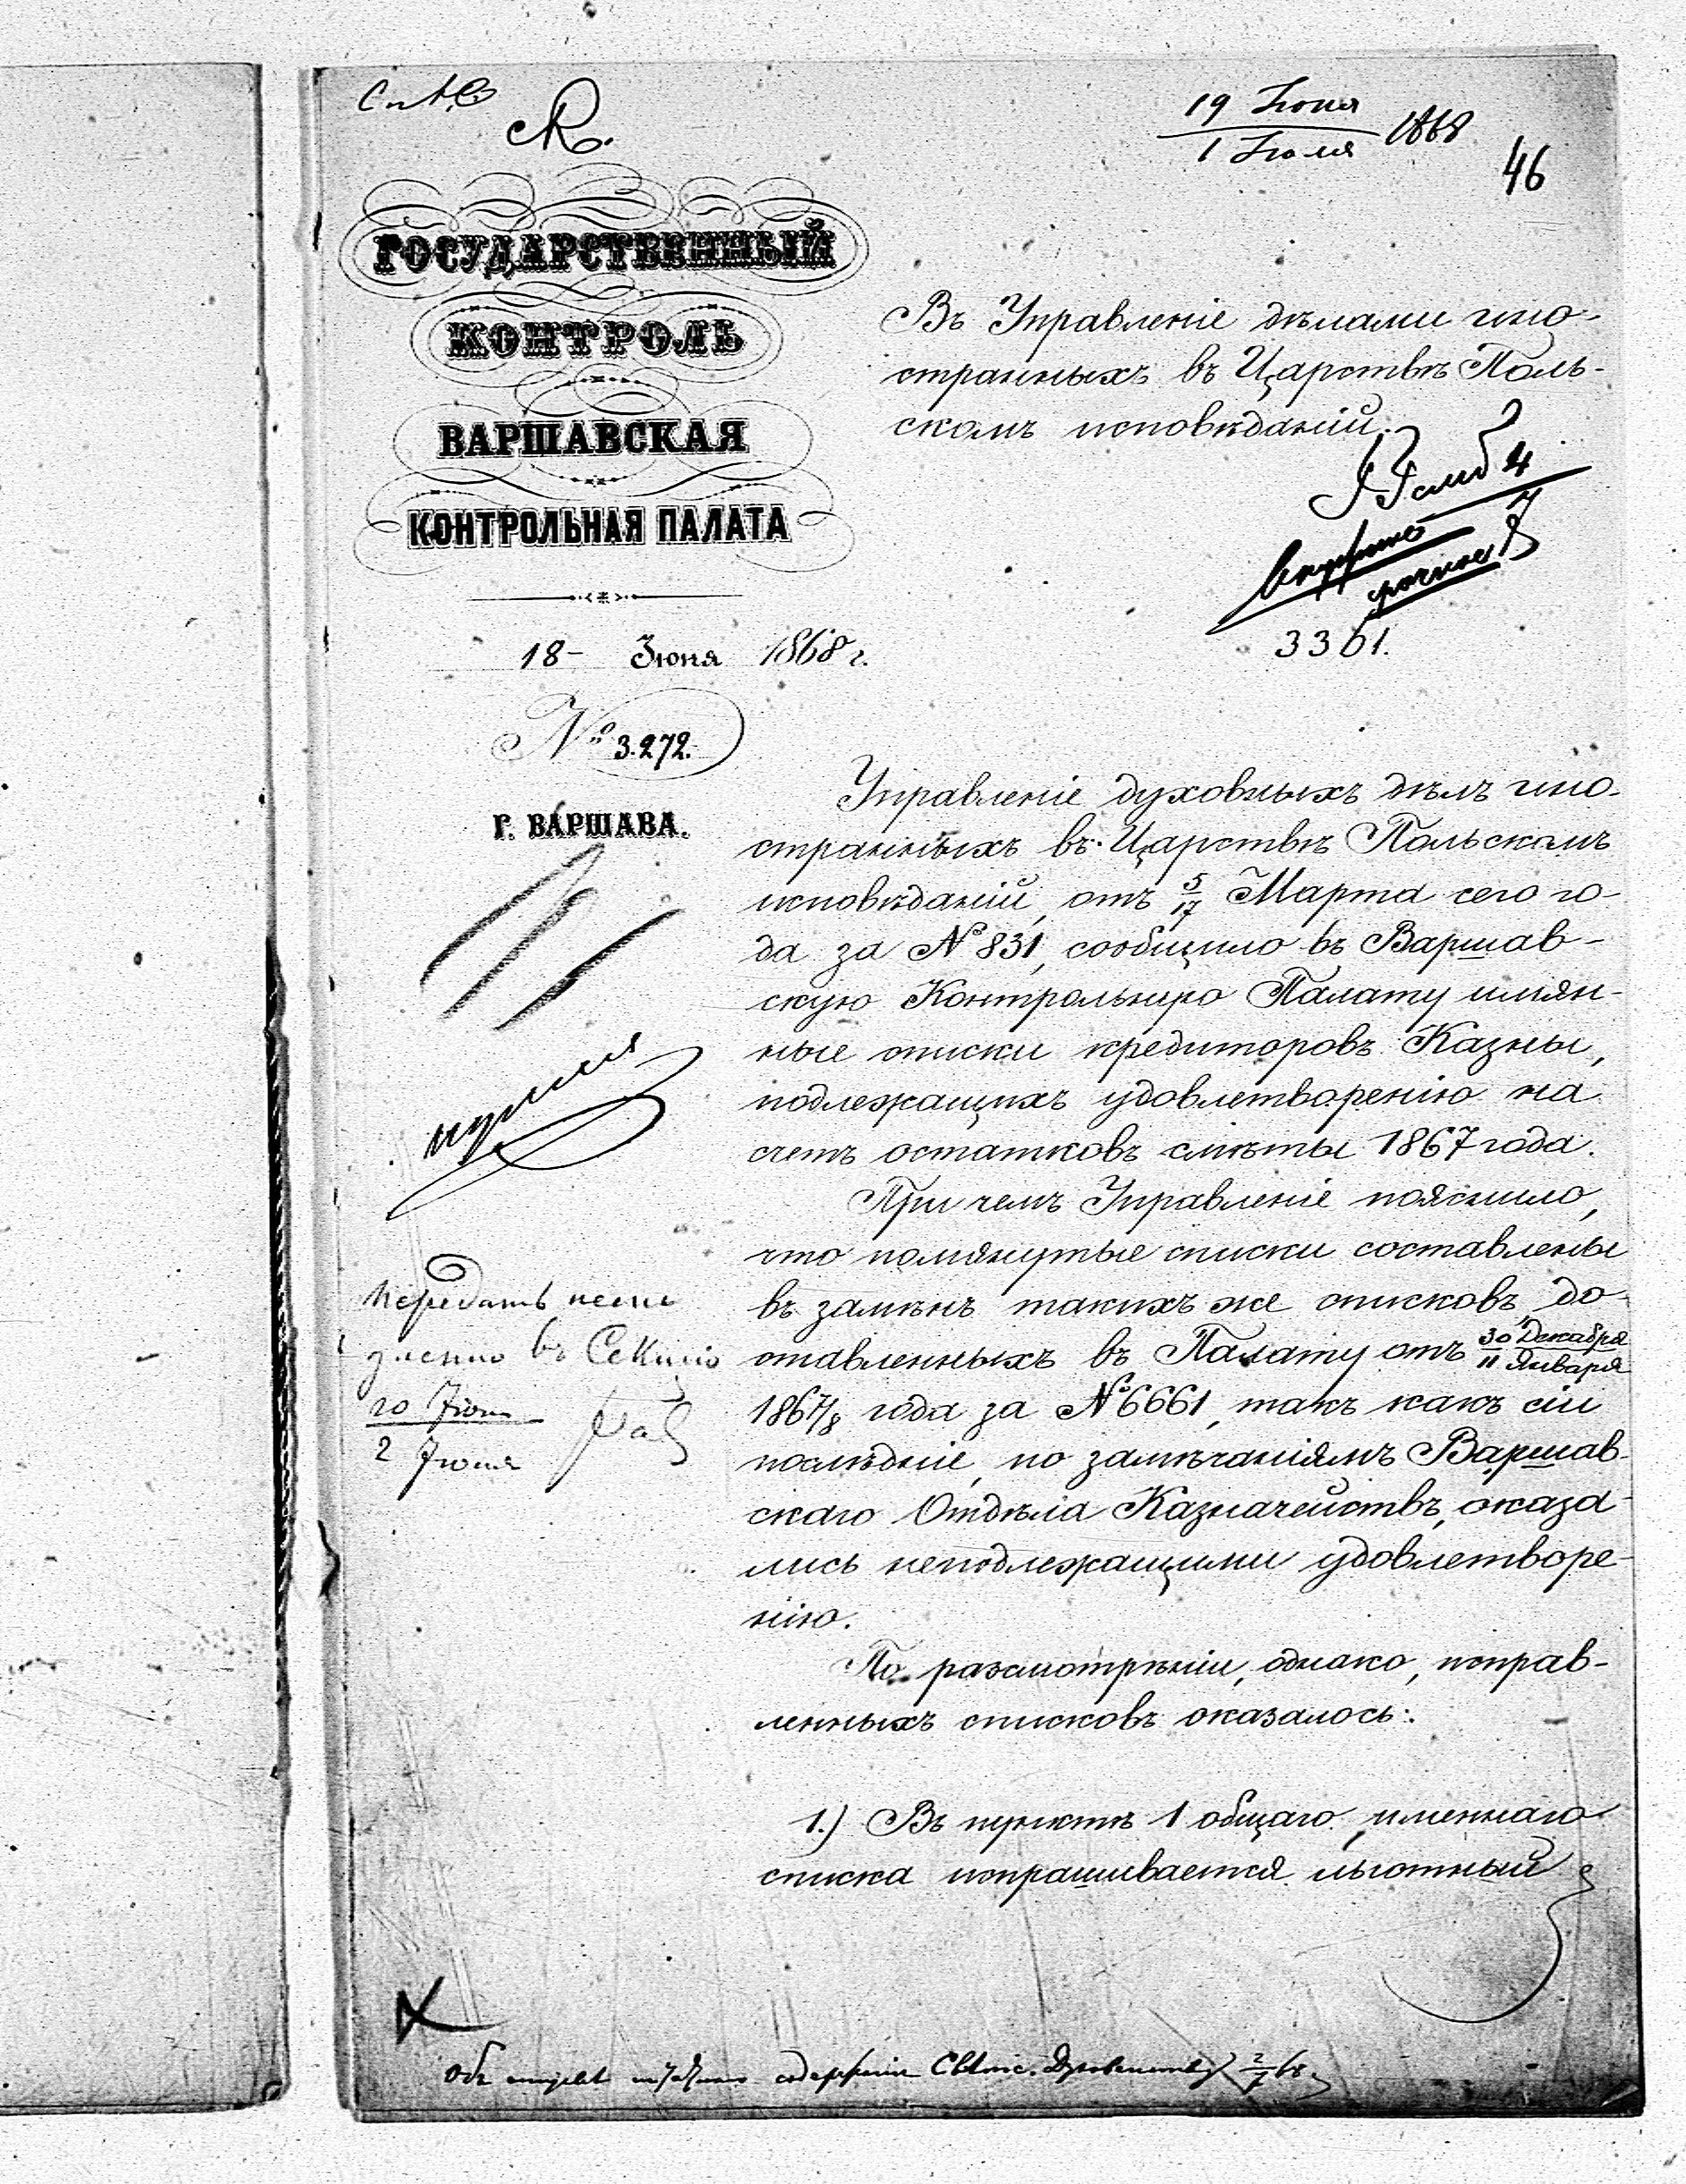 19 Іюня
1 Іюля 1868
46
ГОСУДАРСТВЕННЫЙ
КОНТРОЛЬ
ВАРШАВСКАЯ
КОНТРОЛЬНАЯ ПАЛАТА
18 Іюня 1868 г.
№ 3.272.
Г. ВАРШАВА.
Въ Управленіе дѣлами ино-
странныхъ въ Царствѣ Поль-
скомъ исповѣданій.
3361.
Управленіе духовныхъ дѣлъ ино-
странныхъ въ Царствѣ Польскомъ
исповѣданій, отъ 5/17 Марта сего го-
да за № 831, сообщило въ Варшав-
скую Контрольную Палату имян-
ные списки кредиторовъ Казны,
подлежащихъ удовлетворенію на
счетъ остатковъ смѣты 1867 года.
При чемъ Управленіе пояснило,
что помянутые списки составлены
въ замѣнъ такихъ же списковъ, до-
ставленныхъ въ Палату отъ 30 Декабря/11 Января
1867/8 года за № 6661, такъ какъ сіи
послѣдніе, по замѣчаніямъ Варшав-
скаго Отдѣла Казначействъ, оказа-
лись неподлежащими удовлетворе-
нію.
По разсмотрѣніи, однако, исправ-
ленныхъ списковъ оказалось:
1.) Въ пунктѣ 1 общаго имennаго
списка испрашивается льготный
Передать
въ Секцію
20 Іюн
2 Іюля